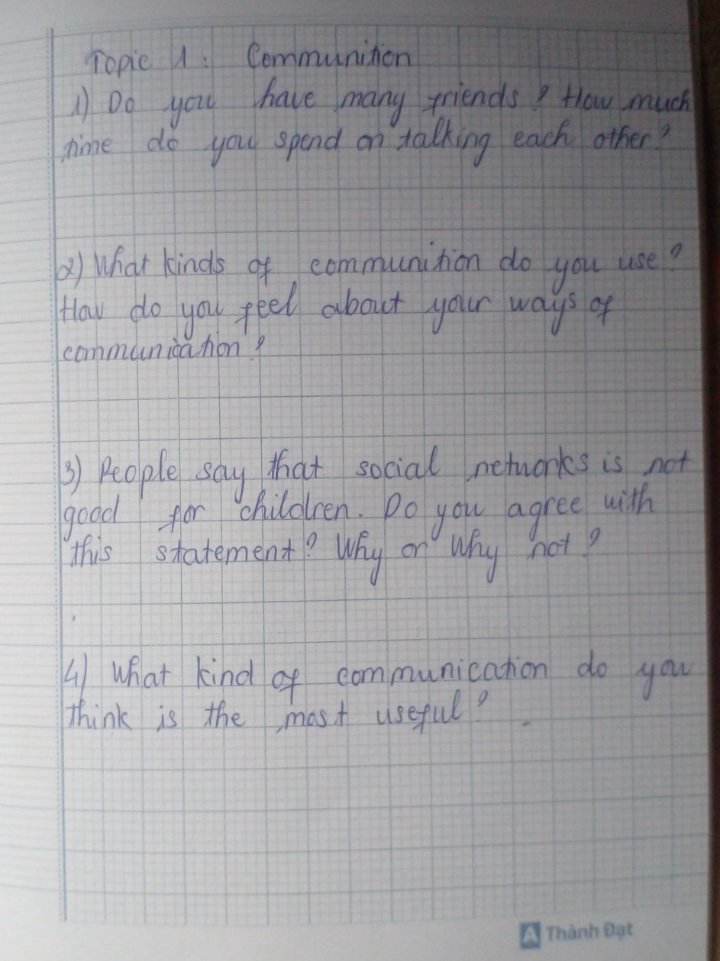 Topic 1: Communition
1) Do you have many friends? How much
time do you spend on talking each other?
2) What kinds of communition do you use?
How do you feel about your ways of
communication?
3) People say that social networks is not
good for children. Do you agree with
this statement? Why or Why not?
4) What kind of communication do you
think is the most useful?
Thành Đạt